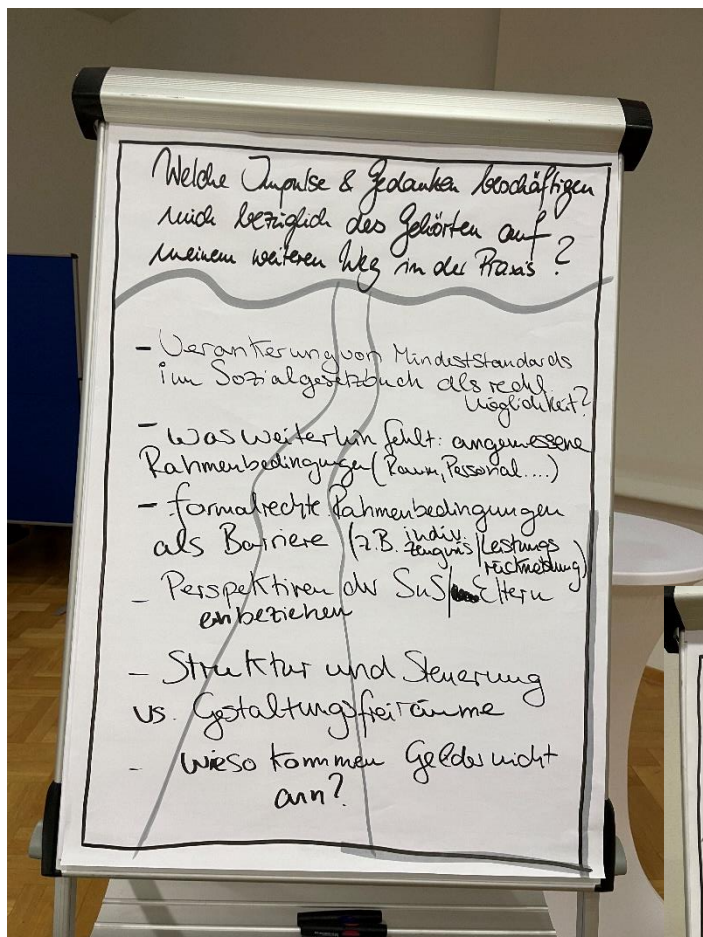 Welche Impulse & Gedanken beschäftigen
mich bezüglich des Gehörten auf
meinem weiteren Weg in der Praxis?
- Verankerung von Mindeststandards
im Sozialgesetzbuch als rechtl.
Möglichkeit?
- Was weiterhin fehlt: angemessene
Rahmenbedingungen (Raum, Personal....)
- formalrechte Rahmenbedingungen
als Barriere (z.B. indiv.
Zeugnis/Leistungs
rückmeldung)
- Perspektiven der SuS/Eltern
einbeziehen
- Struktur und Steuerung
vs. Gestaltungsfreiräume
- wieso kommen Gelder nicht
ann?